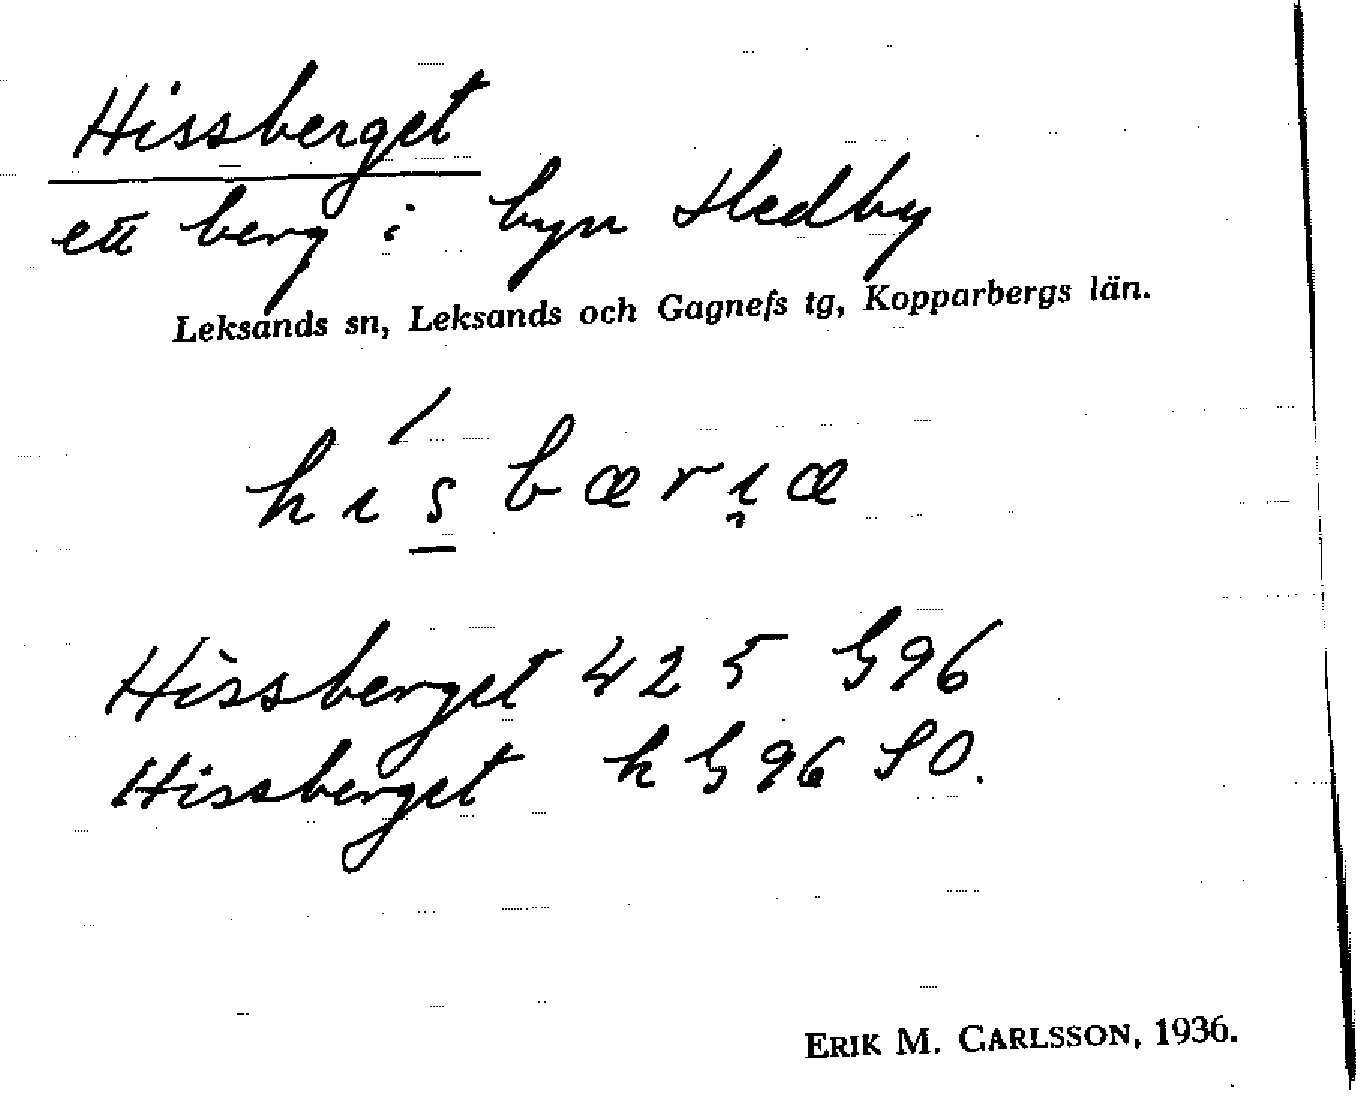 Hissberget
ett berg i byn Hedby
Leksands sn, Leksands och Gagnefs tg, Kopparbergs län.
hı́s̲bærı̯æ
Hissberget 425 G96
Hissberget k G96 SO.
ERIK M. CARLSSON, 1936.